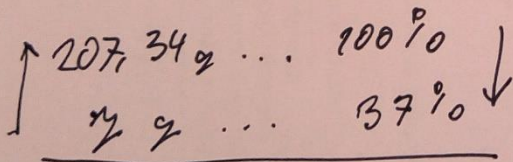 207,34 g ... 100%
y g ... 37%